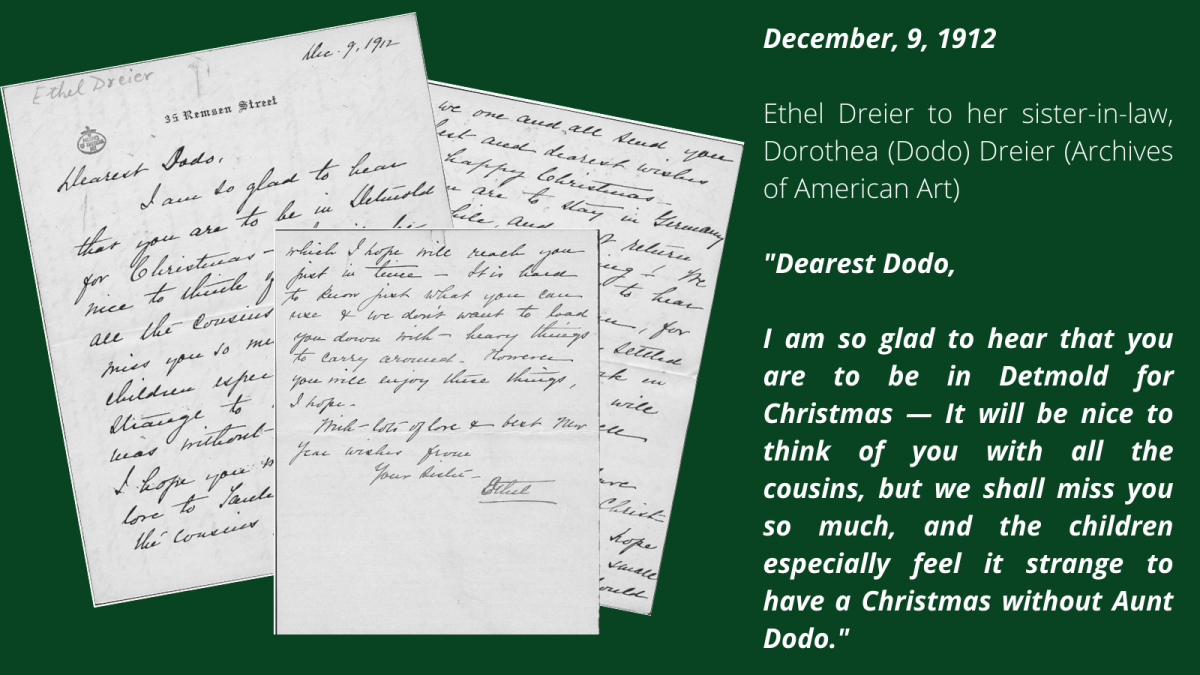 Ethel Dreier
Dec. 9, 1912
35 Remsen Street
Dearest Dodo,
I am so glad to hear
that you are to be in Detmold
for Christmas —
nice to think
all the cousins
miss you so
children
strange to
was without
I hope you
love to
the cousins
we one and all send you
and dearest wishes
happy Christmas —
are to stay in Germany
and return
! We
to hear
for
settled
in
will
Christ-
hope
small
which I hope will reach you
just in time — It is hard
to know just what you can
use & we don't want to load
you down with heavy things
to carry around. However
you will enjoy these things,
I hope —
With lots of love & best New
Year wishes from
Your sister —
Ethel
December, 9, 1912
Ethel Dreier to her sister-in-law,
Dorothea (Dodo) Dreier (Archives
of American Art)
"Dearest Dodo,
I am so glad to hear that you
are to be in Detmold for
Christmas — It will be nice to
think of you with all the
cousins, but we shall miss you
so much, and the children
especially feel it strange to
have a Christmas without Aunt
Dodo."